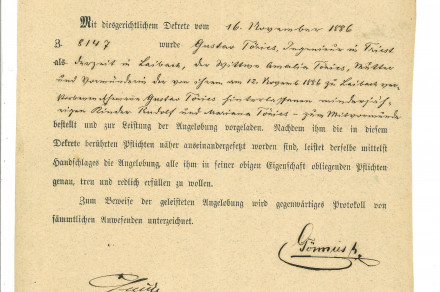 Mit diesgerichtlichem Dekrete vom 16. November 1886
Z. 8147 wurde Gustav Tönies, Ingenieur in Triest
als derzeit in Laibach, der Wittwe Amalia Tönies, Mutter
und Vormünderin der von ihrem am 12. Novemb 1886 zu Laibach ver-
storbenen Ehemann Gustav Tönies hinterlassenen minderjäh-
rigen Kinder Rudolf und Mariana Tönies - zum Mitvormunde
bestellt und zur Leistung der Angelobung vorgeladen. Nachdem ihm die in diesem
Dekrete berührten Pflichten näher auseinandergesetzt worden sind, leistet derselbe mittelst
Handschlages die Angelobung, alle ihm in seiner obigen Eigenschaft obliegenden Pflichten
genau, treu und redlich erfüllen zu wollen.
Zum Beweise der geleisteten Angelobung wird gegenwärtiges Protokoll von
sämmtlichen Anwesenden unterzeichnet.
Tönnies